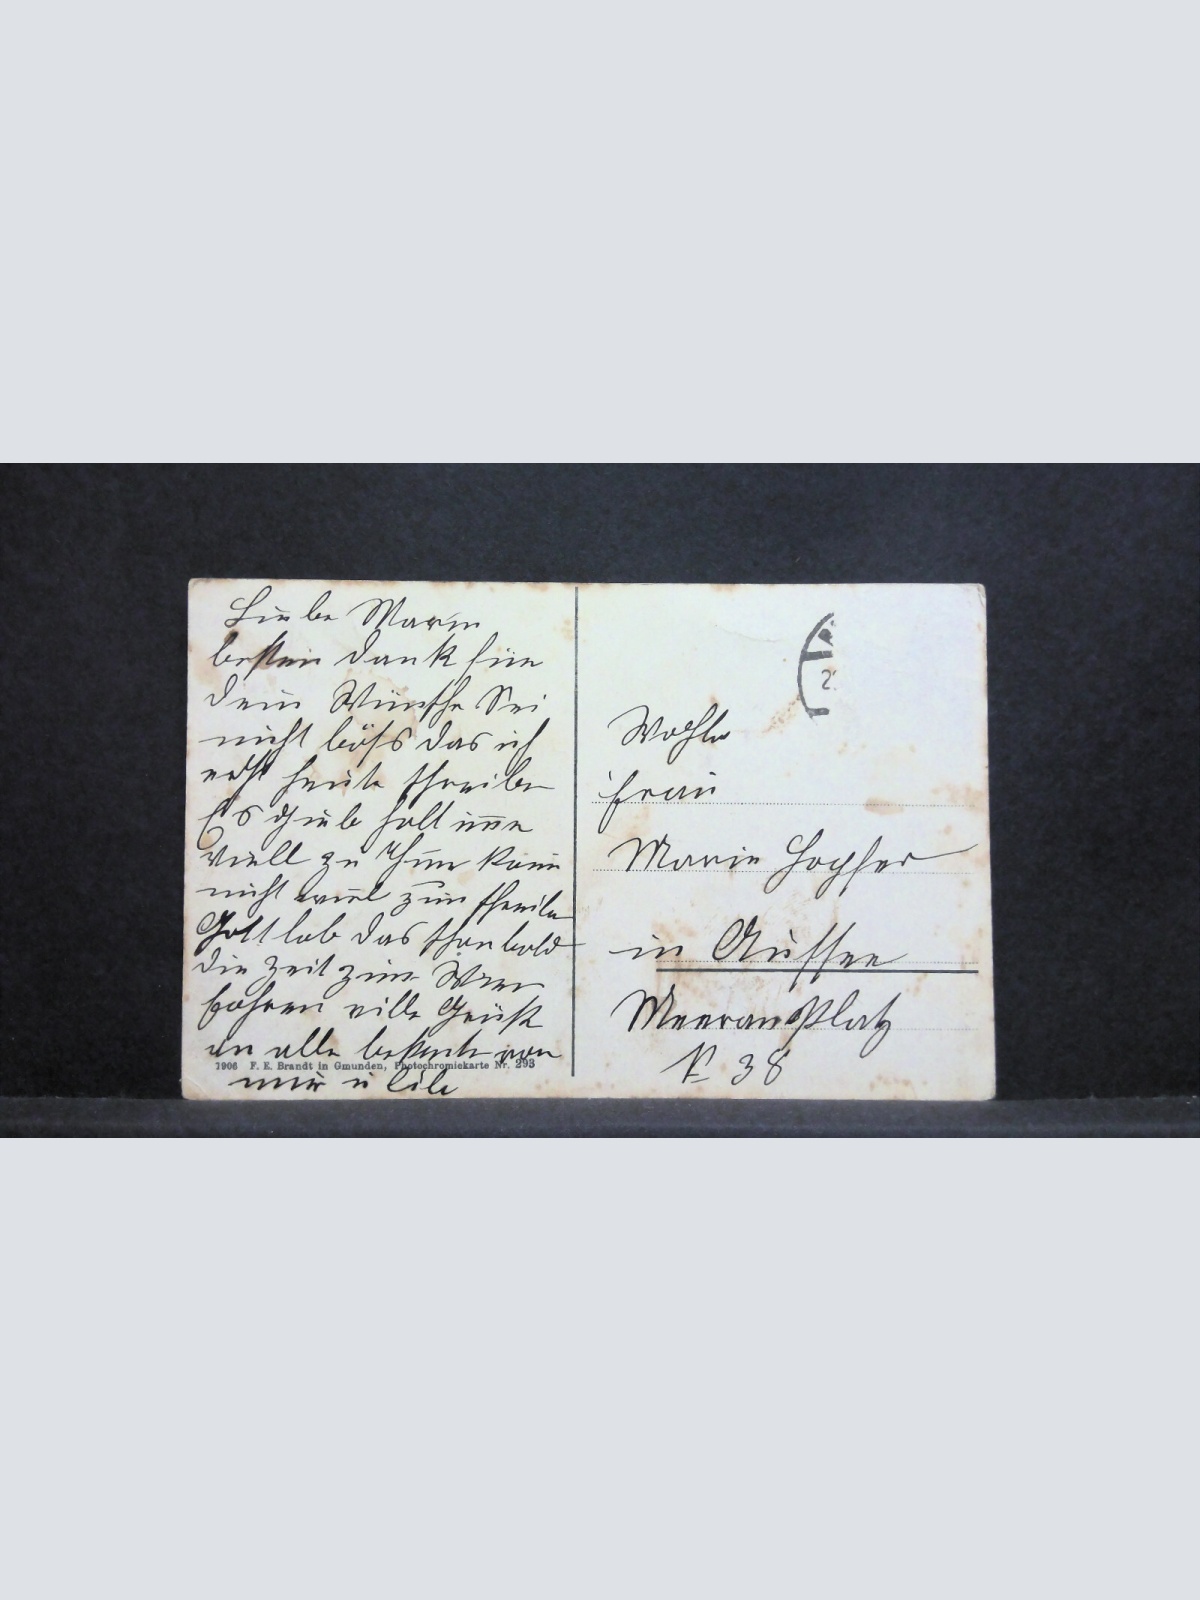 Liebe Marie
besten Dank für
dein Wünsche Sei
nicht böhs das ich
erst heute schreibe
Es gieb halt imer
viell zu Thun kann
nicht viel zum schreiben
Gott lob das schon bald
die Zeit zum
fahren ville Grüße
an alle bekante von
mir u
1906 F. E. Brandt in Gmunden, Photochromiekarte Nr. 293
2
Wohlg
Frau
Marie Hopfer
in Aussee
Meeranplatz
N 38